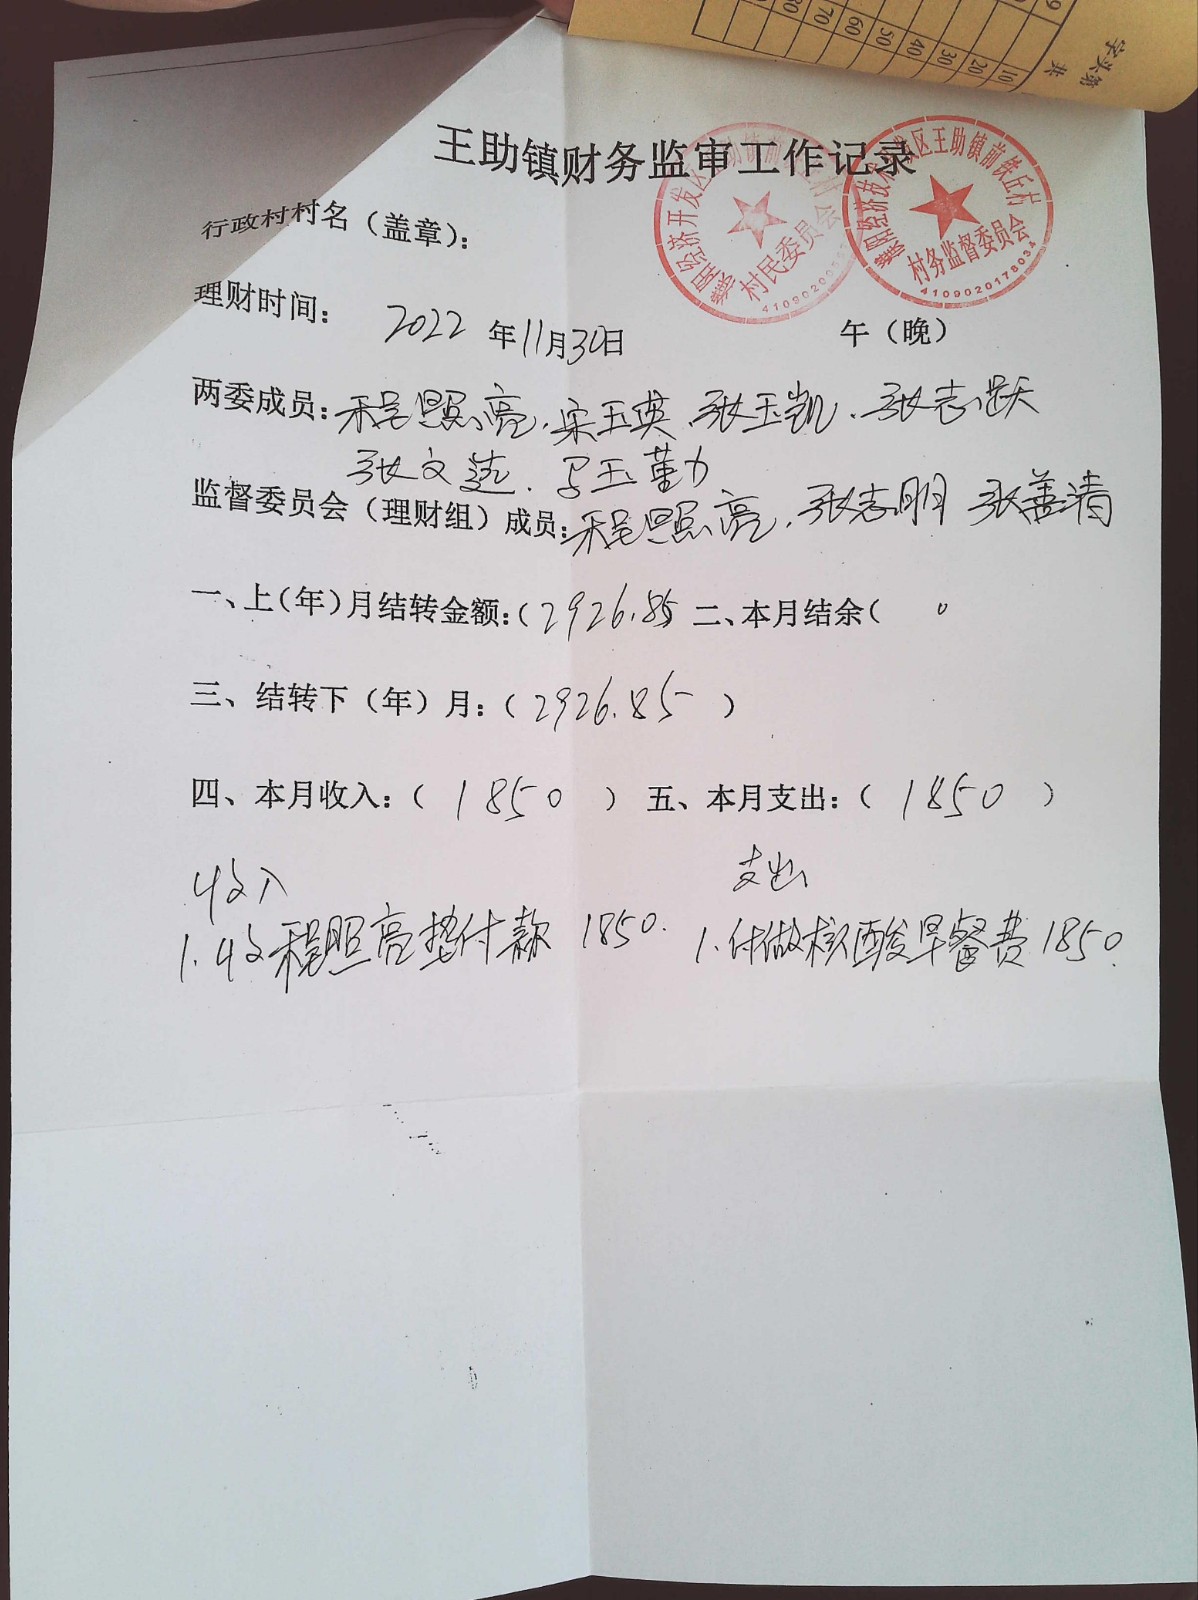 字头第
共
9
10
20
30
40
50
60
70
80
王助镇财务监审工作记录
濮阳经济开发区王助镇前
村民委员会
41090200
濮阳经济技术开发区王助镇前铁丘村
村务监督委员会
4109020178034
行政村村名（盖章）：
理财时间： 2022 年11月30日 午（晚）
两委成员：程照亮.宋玉英.张玉凯.张志跃
张文选.马玉勤
监督委员会（理财组）成员：程照亮.张志明 张善清
一、上（年）月结转金额：（2926.85 二、本月结余（ 0
三、结转下（年）月：（2926.85 ）
四、本月收入：（ 1850 ） 五、本月支出：（ 1850 ）
收入 支出
1.收程照亮垫付款 1850. 1.付做核酸早餐费1850.